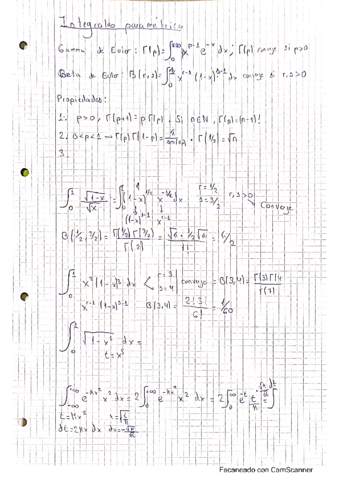 Integrales paramétricas
Gamma de Euler: Γ(p) = ∫₀^{+∞} x^{p-1} e^{-x} dx ; Γ(p) conv si p>0
Beta de Euler: B(r,s) = ∫₀¹ x^{r-1} (1-x)^{s-1} dx converge si r,s>0
Propiedades:
1. p>0, Γ(p+1) = pΓ(p). Si n∈N, Γ(n) = (n-1)!
2. 0<p<1 → Γ(p)Γ(1-p) =
3.
∫₀¹ √(1-x)/√x = ∫₀¹ (1-x)^{1/2} x^{-1/2} dx r=1/2 s=3/2 r,s>0 Converge
(1-x)^{s-1} x^{r-1}
B(1/2, 3/2) = Γ(1/2)Γ(3/2)/Γ(2) =
∫₀¹ x² (1-x)³ dx r=3 s=4 converge = B(3,4) = Γ(3)Γ(4)/Γ(7)
x^{r-1} (1-x)^{s-1} B(3,4) = 2! 3!/6! = 1/60
∫₀¹ √(1-x⁵) dx =
t=x⁵
∫_{-∞}^{+∞} e^{-kx²} x² dx = 2∫₀^{+∞} e^{-kx²} x² dx = 2∫₀^{+∞} e^{-t}
t=kx²
dt=2kx dx
Escaneado con CamScanner